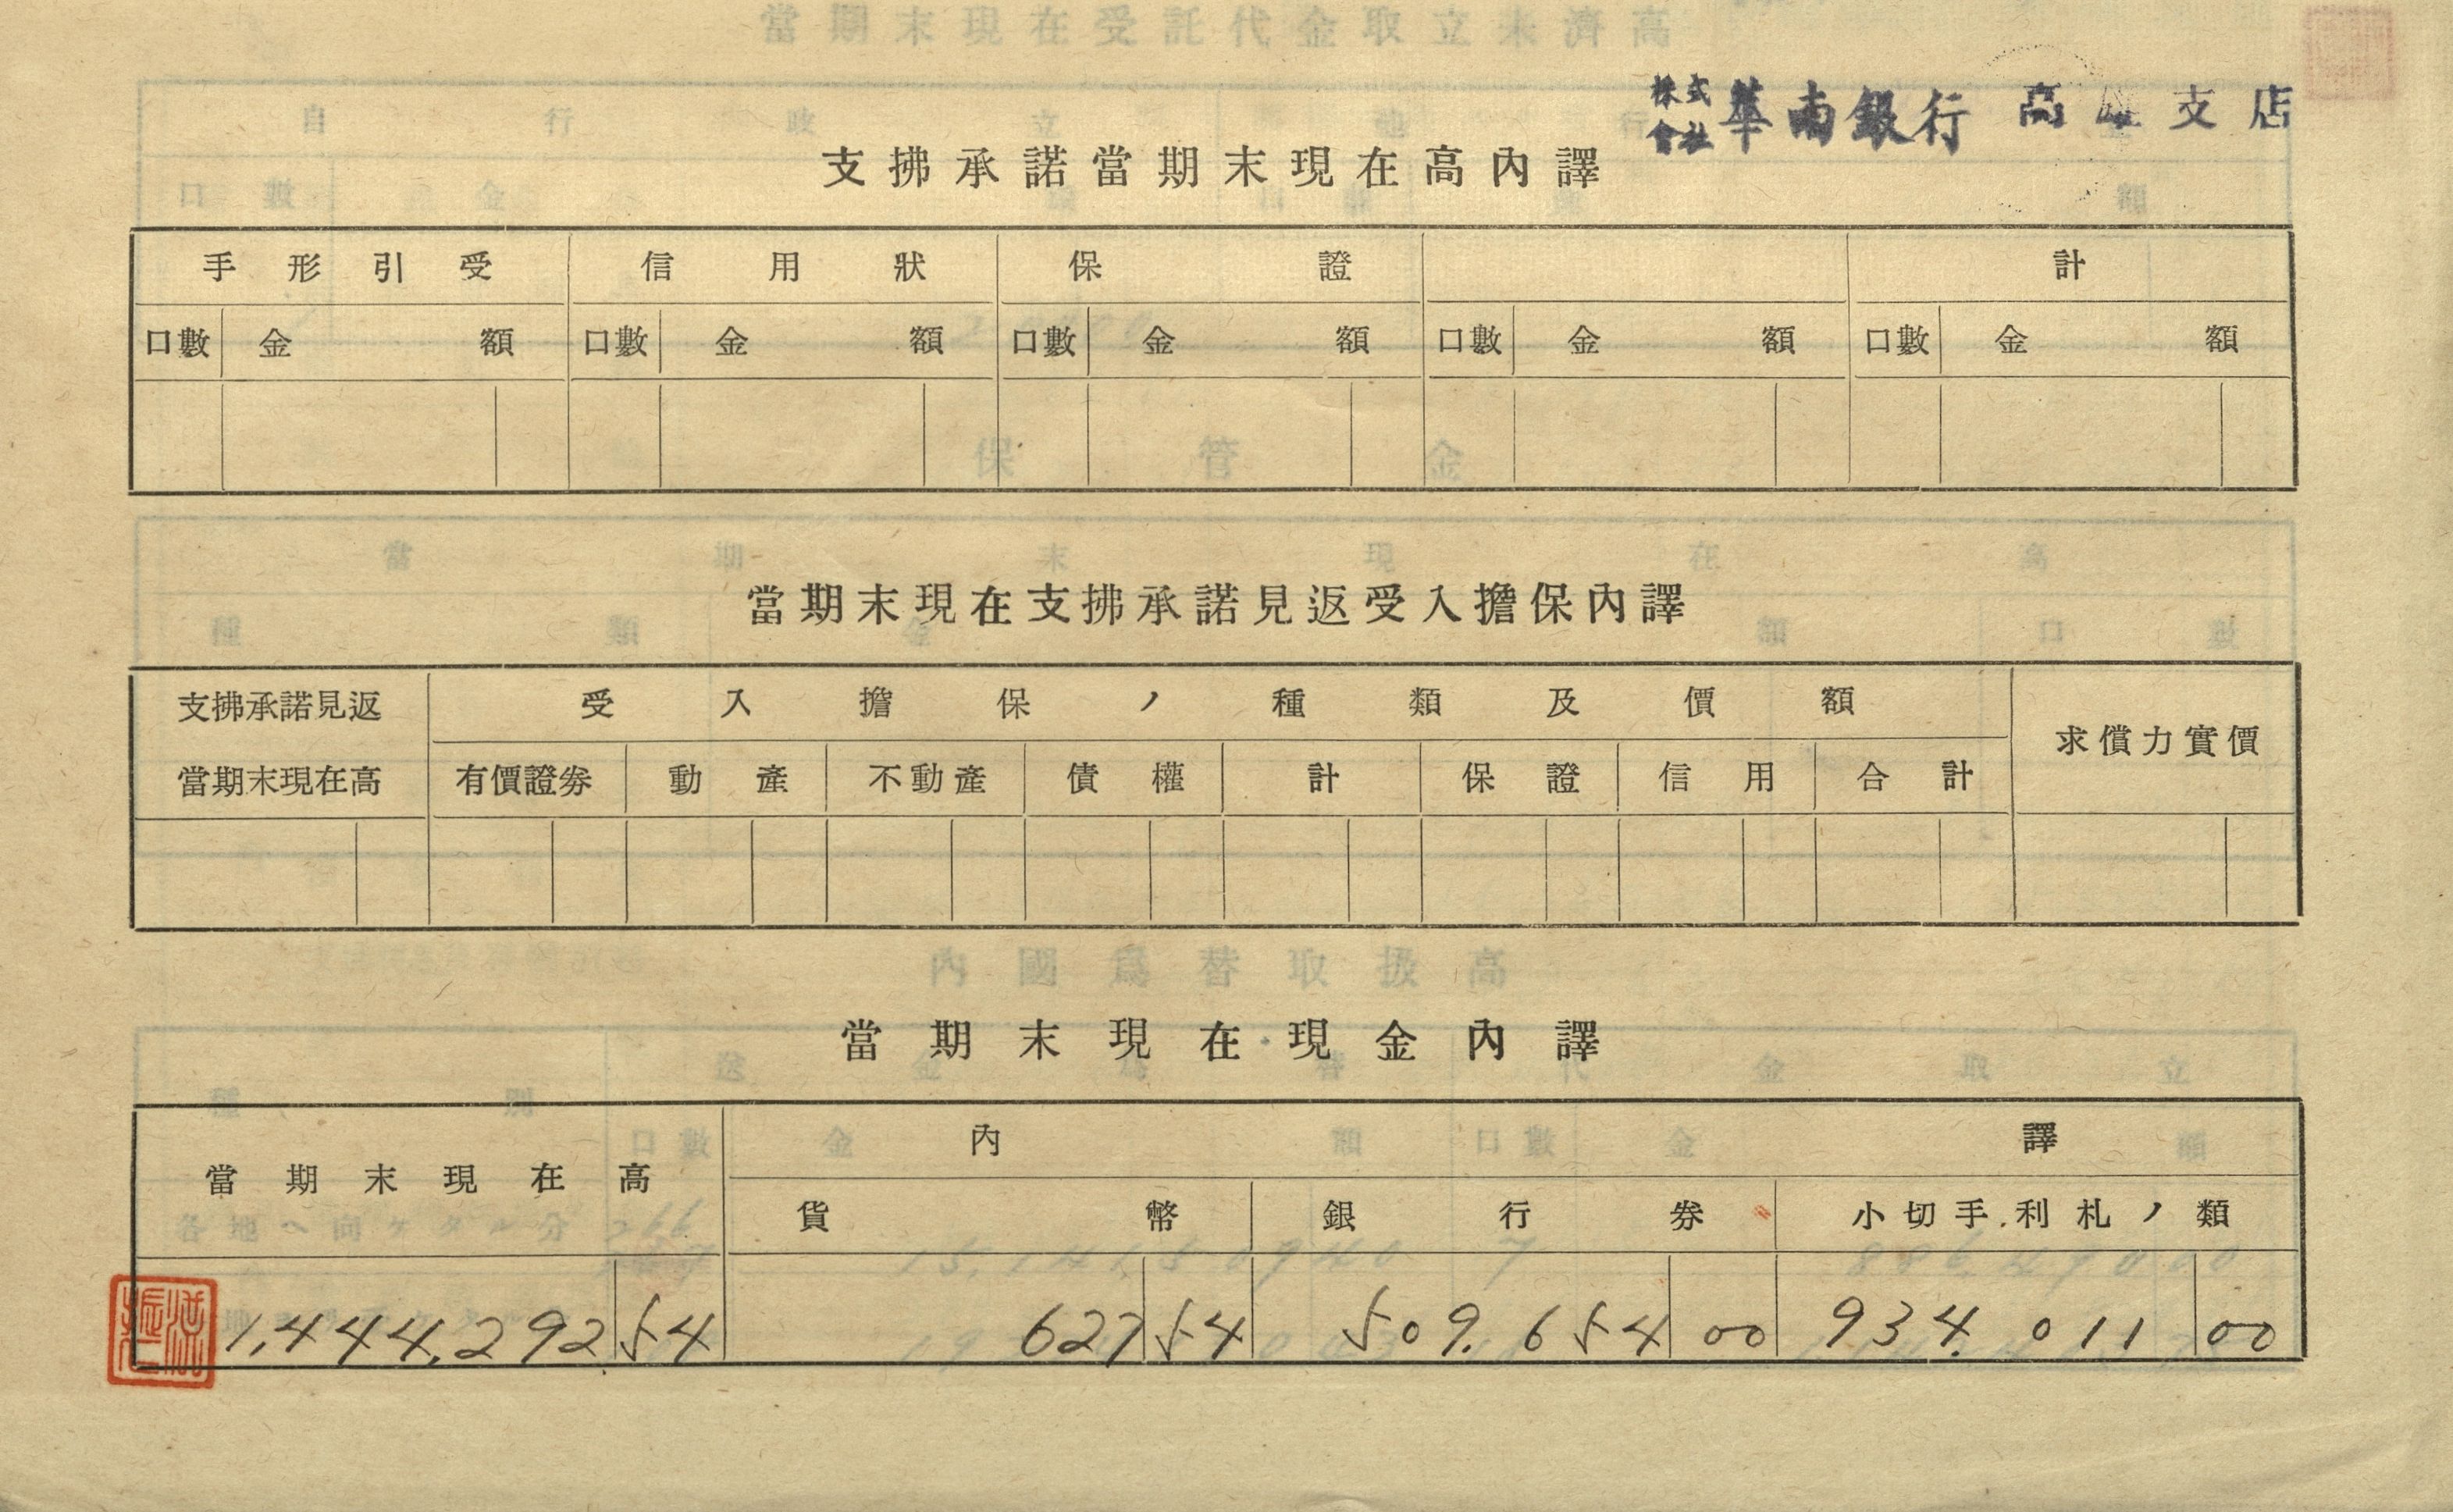 株式會社 華南銀行 高雄支店
支拂承諾當期末現在高內譯
手形引受 信用狀 保證 計
口數 金額 口數 金額 口數 金額 口數 金額 口數 金額
當期末現在支拂承諾見返受入擔保內譯
支拂承諾見返 受入擔保ノ種類及價額
求償力實價
當期末現在高 有價證劵 動產 不動產 債權 計 保證 信用 合計
當期末現在現金內譯
內譯
當期末現在高
貨幣 銀行券 小切手.利札ノ類
1,444,292 54 627 54 509.654 00 934.011 00